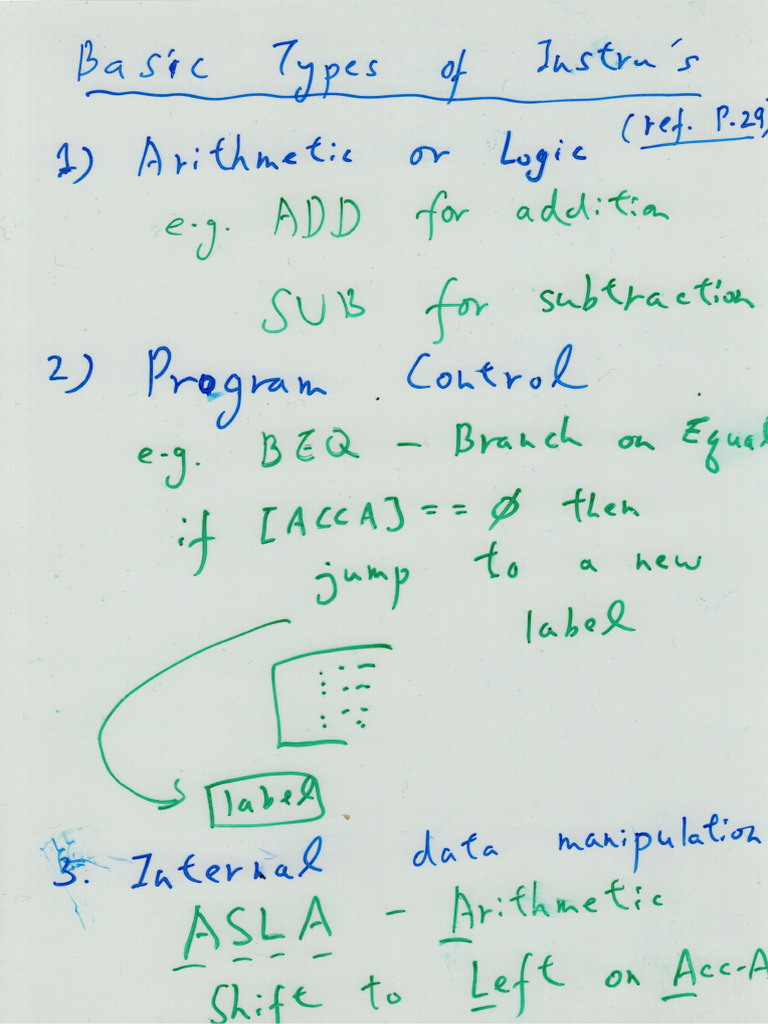 Basic Types of Instru's
1) Arithmetic or Logic (ref. P.29)
e.g. ADD for addition
SUB for subtraction
2) Program Control
e.g. BEQ - Branch on Equal
if [ACCA] == Ø then
jump to a new
label
label
3. Internal data manipulation
ASLA - Arithmetic
Shift to Left on Acc-A